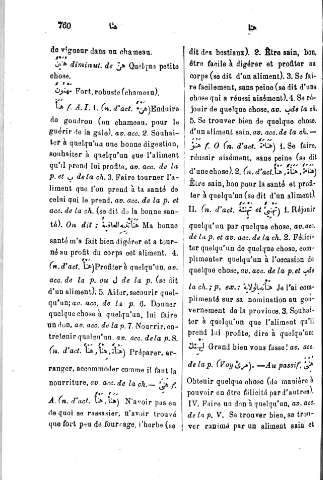 760
هنا
de vigueur dans un chameau.
diminut. de هن Quelque petite
chose.
Fort, robuste (chameau).
f. A. I. 1. (n. d'act. هنء) Enduire
de goudron (un chameau, pour le
guérir de la gale), av. acc. 2. Souhai-
ter à quelqu'un une bonne digestion,
souhaiter à quelqu'un que l'aliment
qu'il prend lui profite, av. acc. de la
p. et ب de la ch. 3. Faire tourner l'ali-
ment que l'on prend à la santé de
celui qui le prend, av. acc. de la p. et
de la ch. (se dit de la bonne san-
té). On dit : Ma bonne
santé m'a fait bien digérer et a tour-
né au profit du corps cet aliment. 4.
(n. d'act. ) Profiter à quelqu'un, av.
acc. de la p. ou ل de la p. (se dit
d'un aliment). 5. Aider, secourir quel-
qu'un; av. acc. de la p. 6. Donner
quelque chose à quelqu'un, lui faire
un don, av. acc. de la p. 7. Nourrir, en-
tretenir quelqu'un, av. acc. de la p. 8.
(n. d'act. ) Préparer, ar-
ranger, accommoder comme il faut la
nourriture, av. acc. de la ch. — f.
A. (n. d'act. ) N'avoir pas eu
de quoi se rassasier, n'avoir trouvé
que fort peu de fourrage, d'herbe (se
هنا
dit des bestiaux). 2. Être sain, bon,
être facile à digérer et profiter au
corps (se dit d'un aliment). 3. Se fai-
re facilement, sans peine (se dit d'une
chose qui a réussi aisément). 4. Se ré-
jouir de quelque chose, av. ب de la ch.
5. Se trouver bien de quelque chose,
d'un aliment sain, av. acc. de la ch. —
f. O (n. d'act. ) 1. Se faire,
réussir aisément, sans peine (se dit
d'une chose). 2. (n. d'act. )
Être sain, bon pour la santé et profi-
ter à quelqu'un (se dit d'un aliment).
II. (n. d'act. et ) 1. Réjouir
quelqu'un par quelque chose, av. acc.
de la p. et av. acc. de la ch. 2. Félici-
ter quelqu'un de quelque chose, com-
plimenter quelqu'un à l'occasion de
quelque chose, av. acc. de la p. et ب de
la ch.; p. ex.: Je l'ai com-
plimenté sur sa nomination au gou-
vernement de la province. 3. Souhai-
ter à quelqu'un que l'aliment qu'il
prend lui profite, dire à quelqu'un
Grand bien vous fasse! av. acc.
de la p. (Voy. ). — Au passif,
Obtenir quelque chose (de manière à
pouvoir en être félicité par d'autres).
IV. Faire un don à quelqu'un, av. acc.
de la p. V. Se trouver bien, se trou-
ver ranimé par un aliment sain et